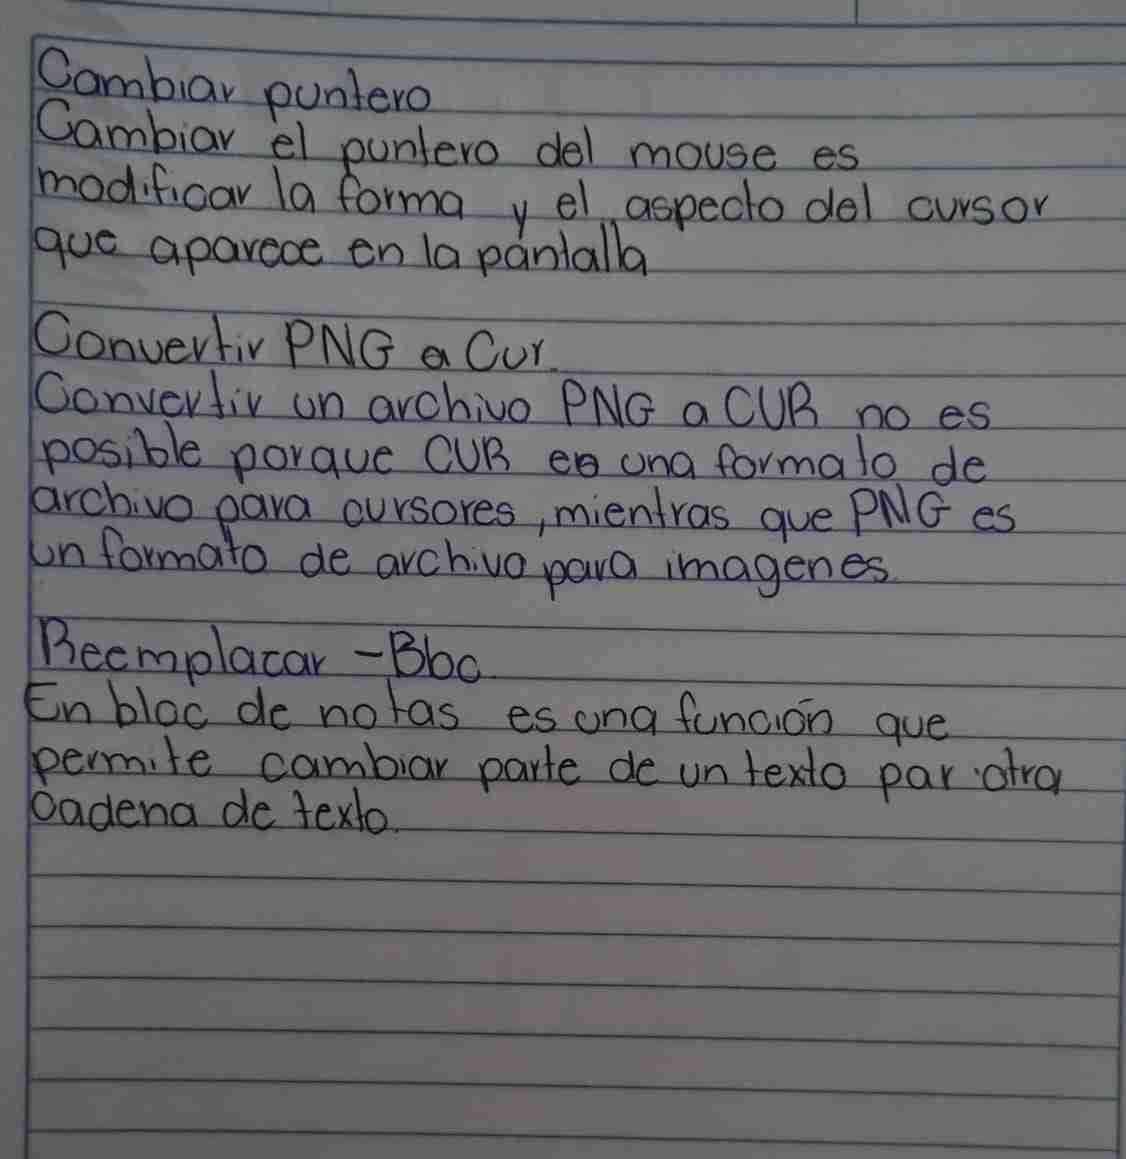 Cambiar puntero
Cambiar el puntero del mouse es
modificar la forma y el aspecto del cursor
que aparece en la pantalla
Convertir PNG a Cur.
Convertir un archivo PNG a CUR no es
posible porque CUR es una formato de
archivo para cursores, mientras que PNG es
un formato de archivo para imagenes.
Reemplacar - Bbc
En bloc de notas es una función que
permite cambiar parte de un texto par otra
cadena de texto.